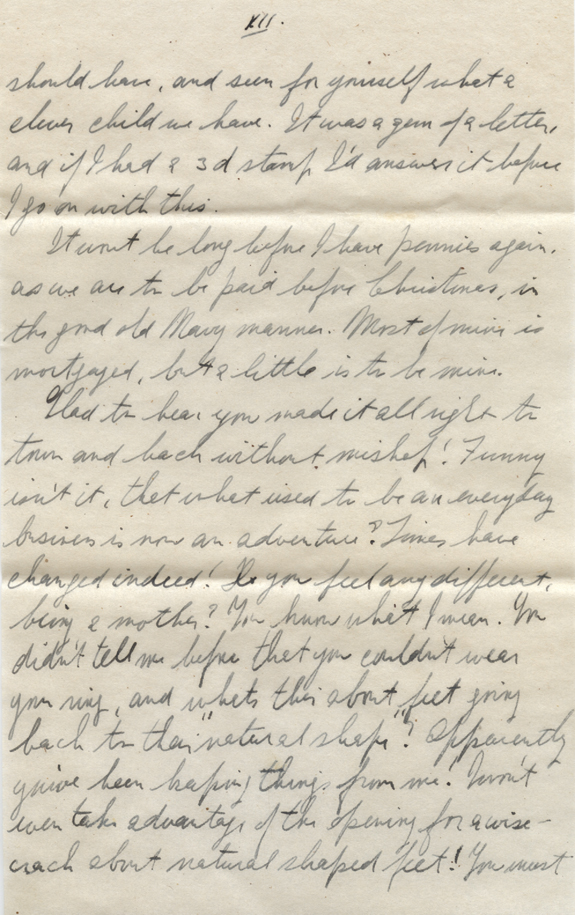 XII.
should have, and seen for yourself what a
clever child we have. It was a gem of a letter,
and if I had a 3d stamp I'd answer it before
I go on with this.
It won't be long before I have pennies again.
as we are to be paid before Christmas, in
the good old Navy manner. Most of mine is
mortgaged, but a little is to be mine.
Glad to hear you made it all right to
town and back without mishap! Funny
isn't it, that what used to be an everyday
business is now an adventure? Times have
changed indeed! Do you feel any different,
being a mother? You know what I mean. You
didn't tell me before that you couldn't wear
your ring, and whats this about feet going
back to their "natural shape"? Apparently
you've been keeping things from me. I won't
even take advantage of the opening for a wise-
crack about natural shaped feet! You must